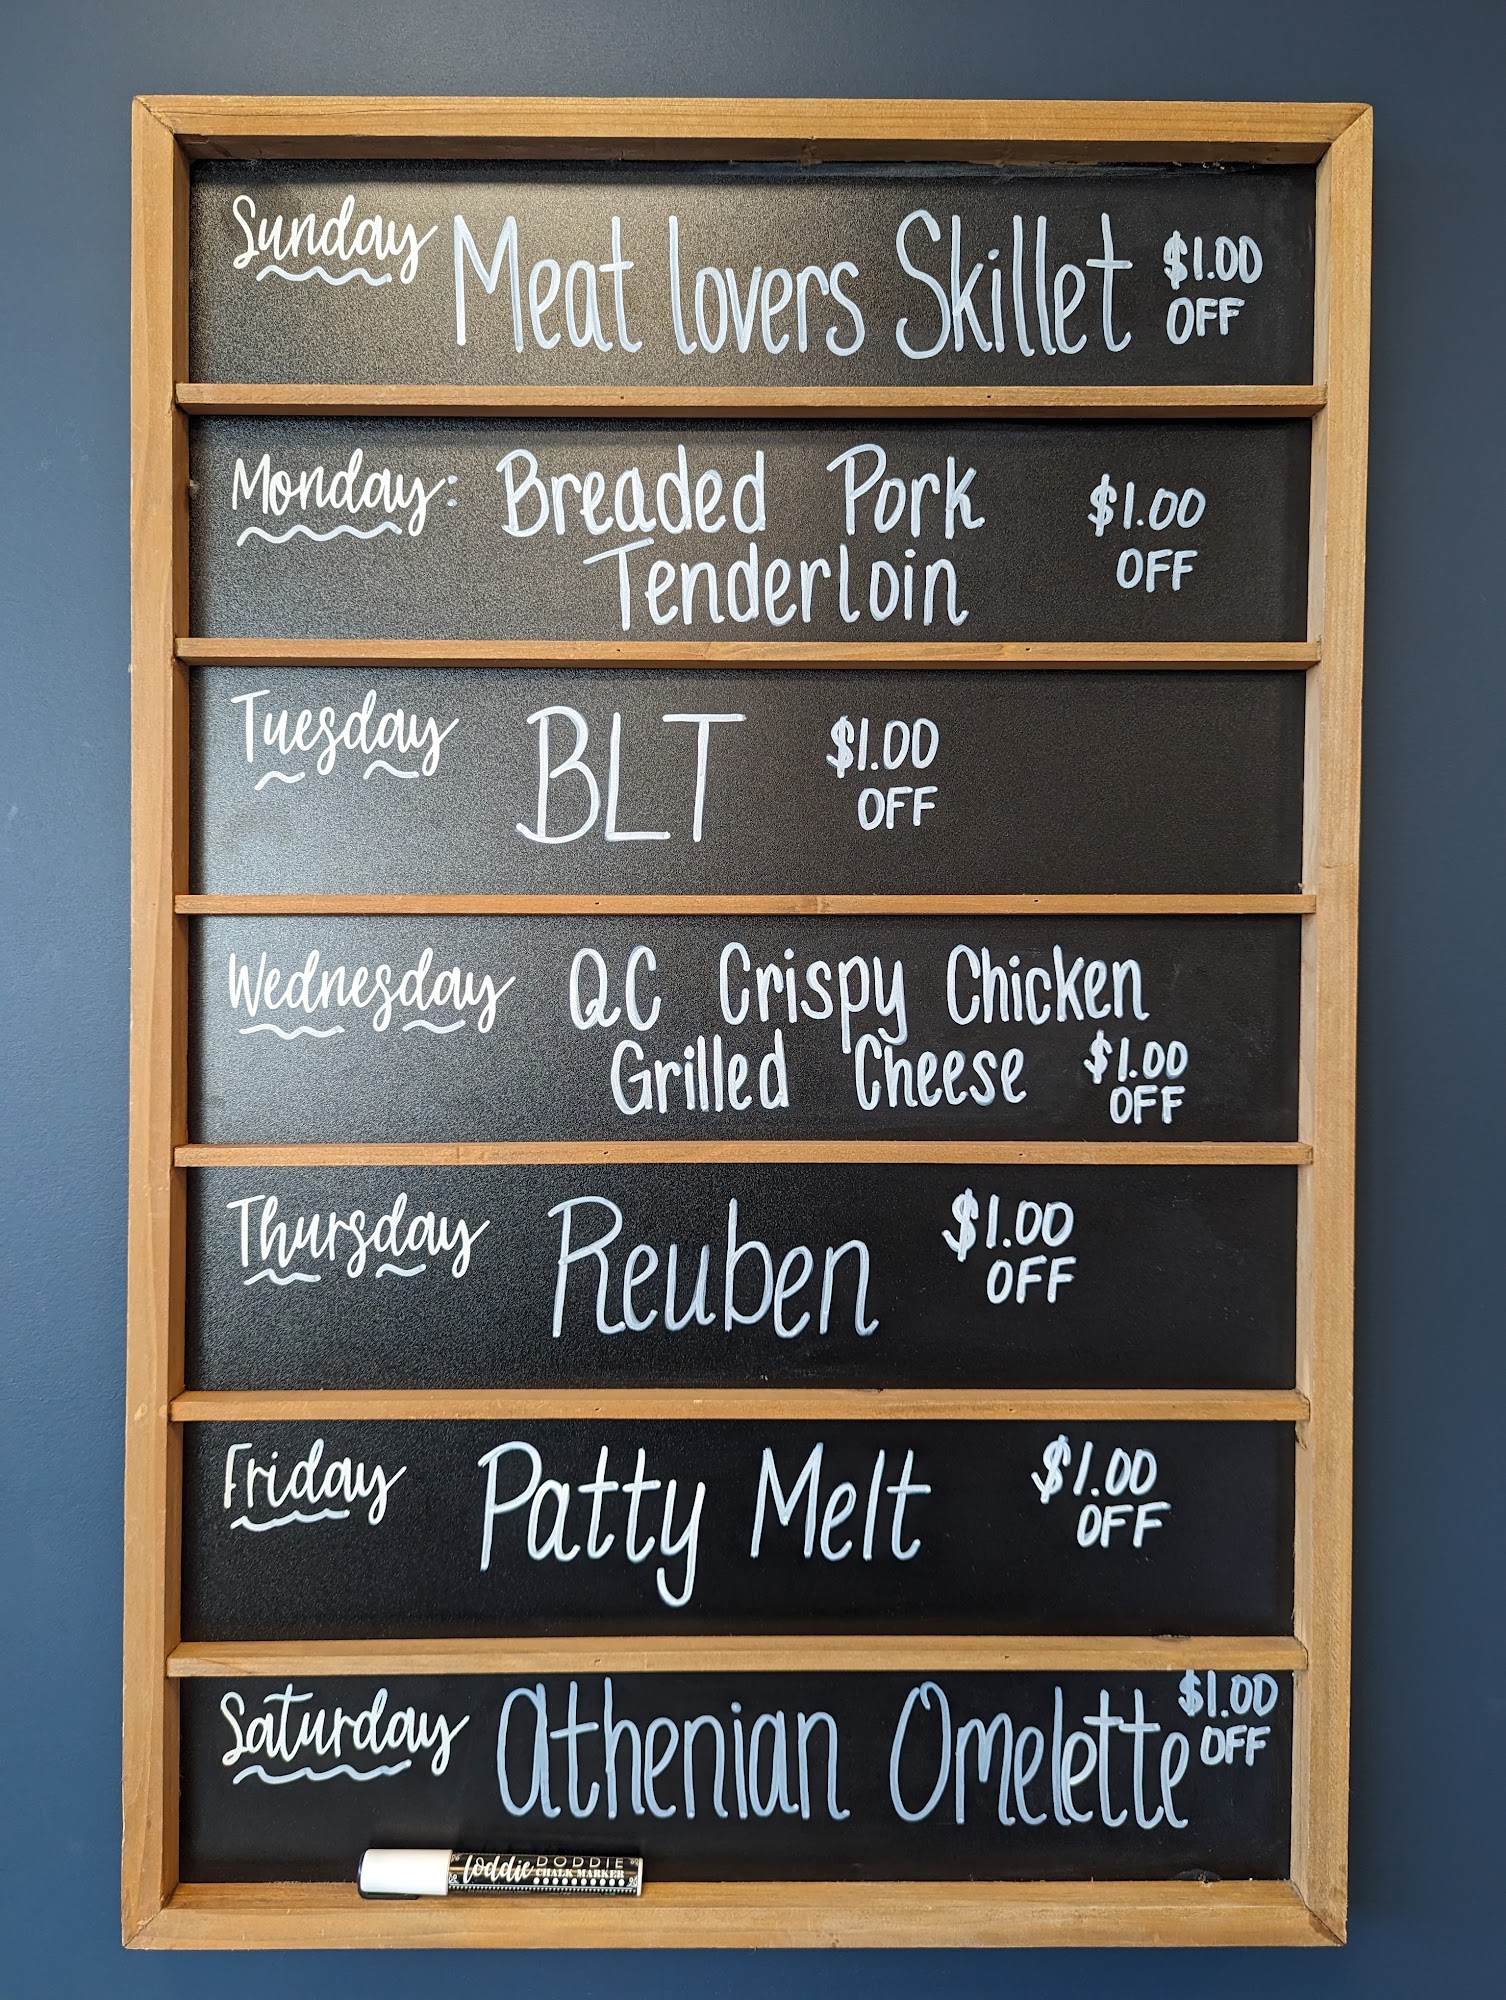 Sunday Meat lovers Skillet $1.00
OFF
Monday: Breaded Pork $1.00
Tenderloin OFF
Tuesday BLT $1.00
OFF
Wednesday QC Crispy Chicken
Grilled Cheese $1.00
OFF
Thursday Reuben $1.00
OFF
Friday Patty Melt $1.00
OFF
Saturday Athenian Omelette $1.00
OFF
loddie DODDIE
CHALK MARKER